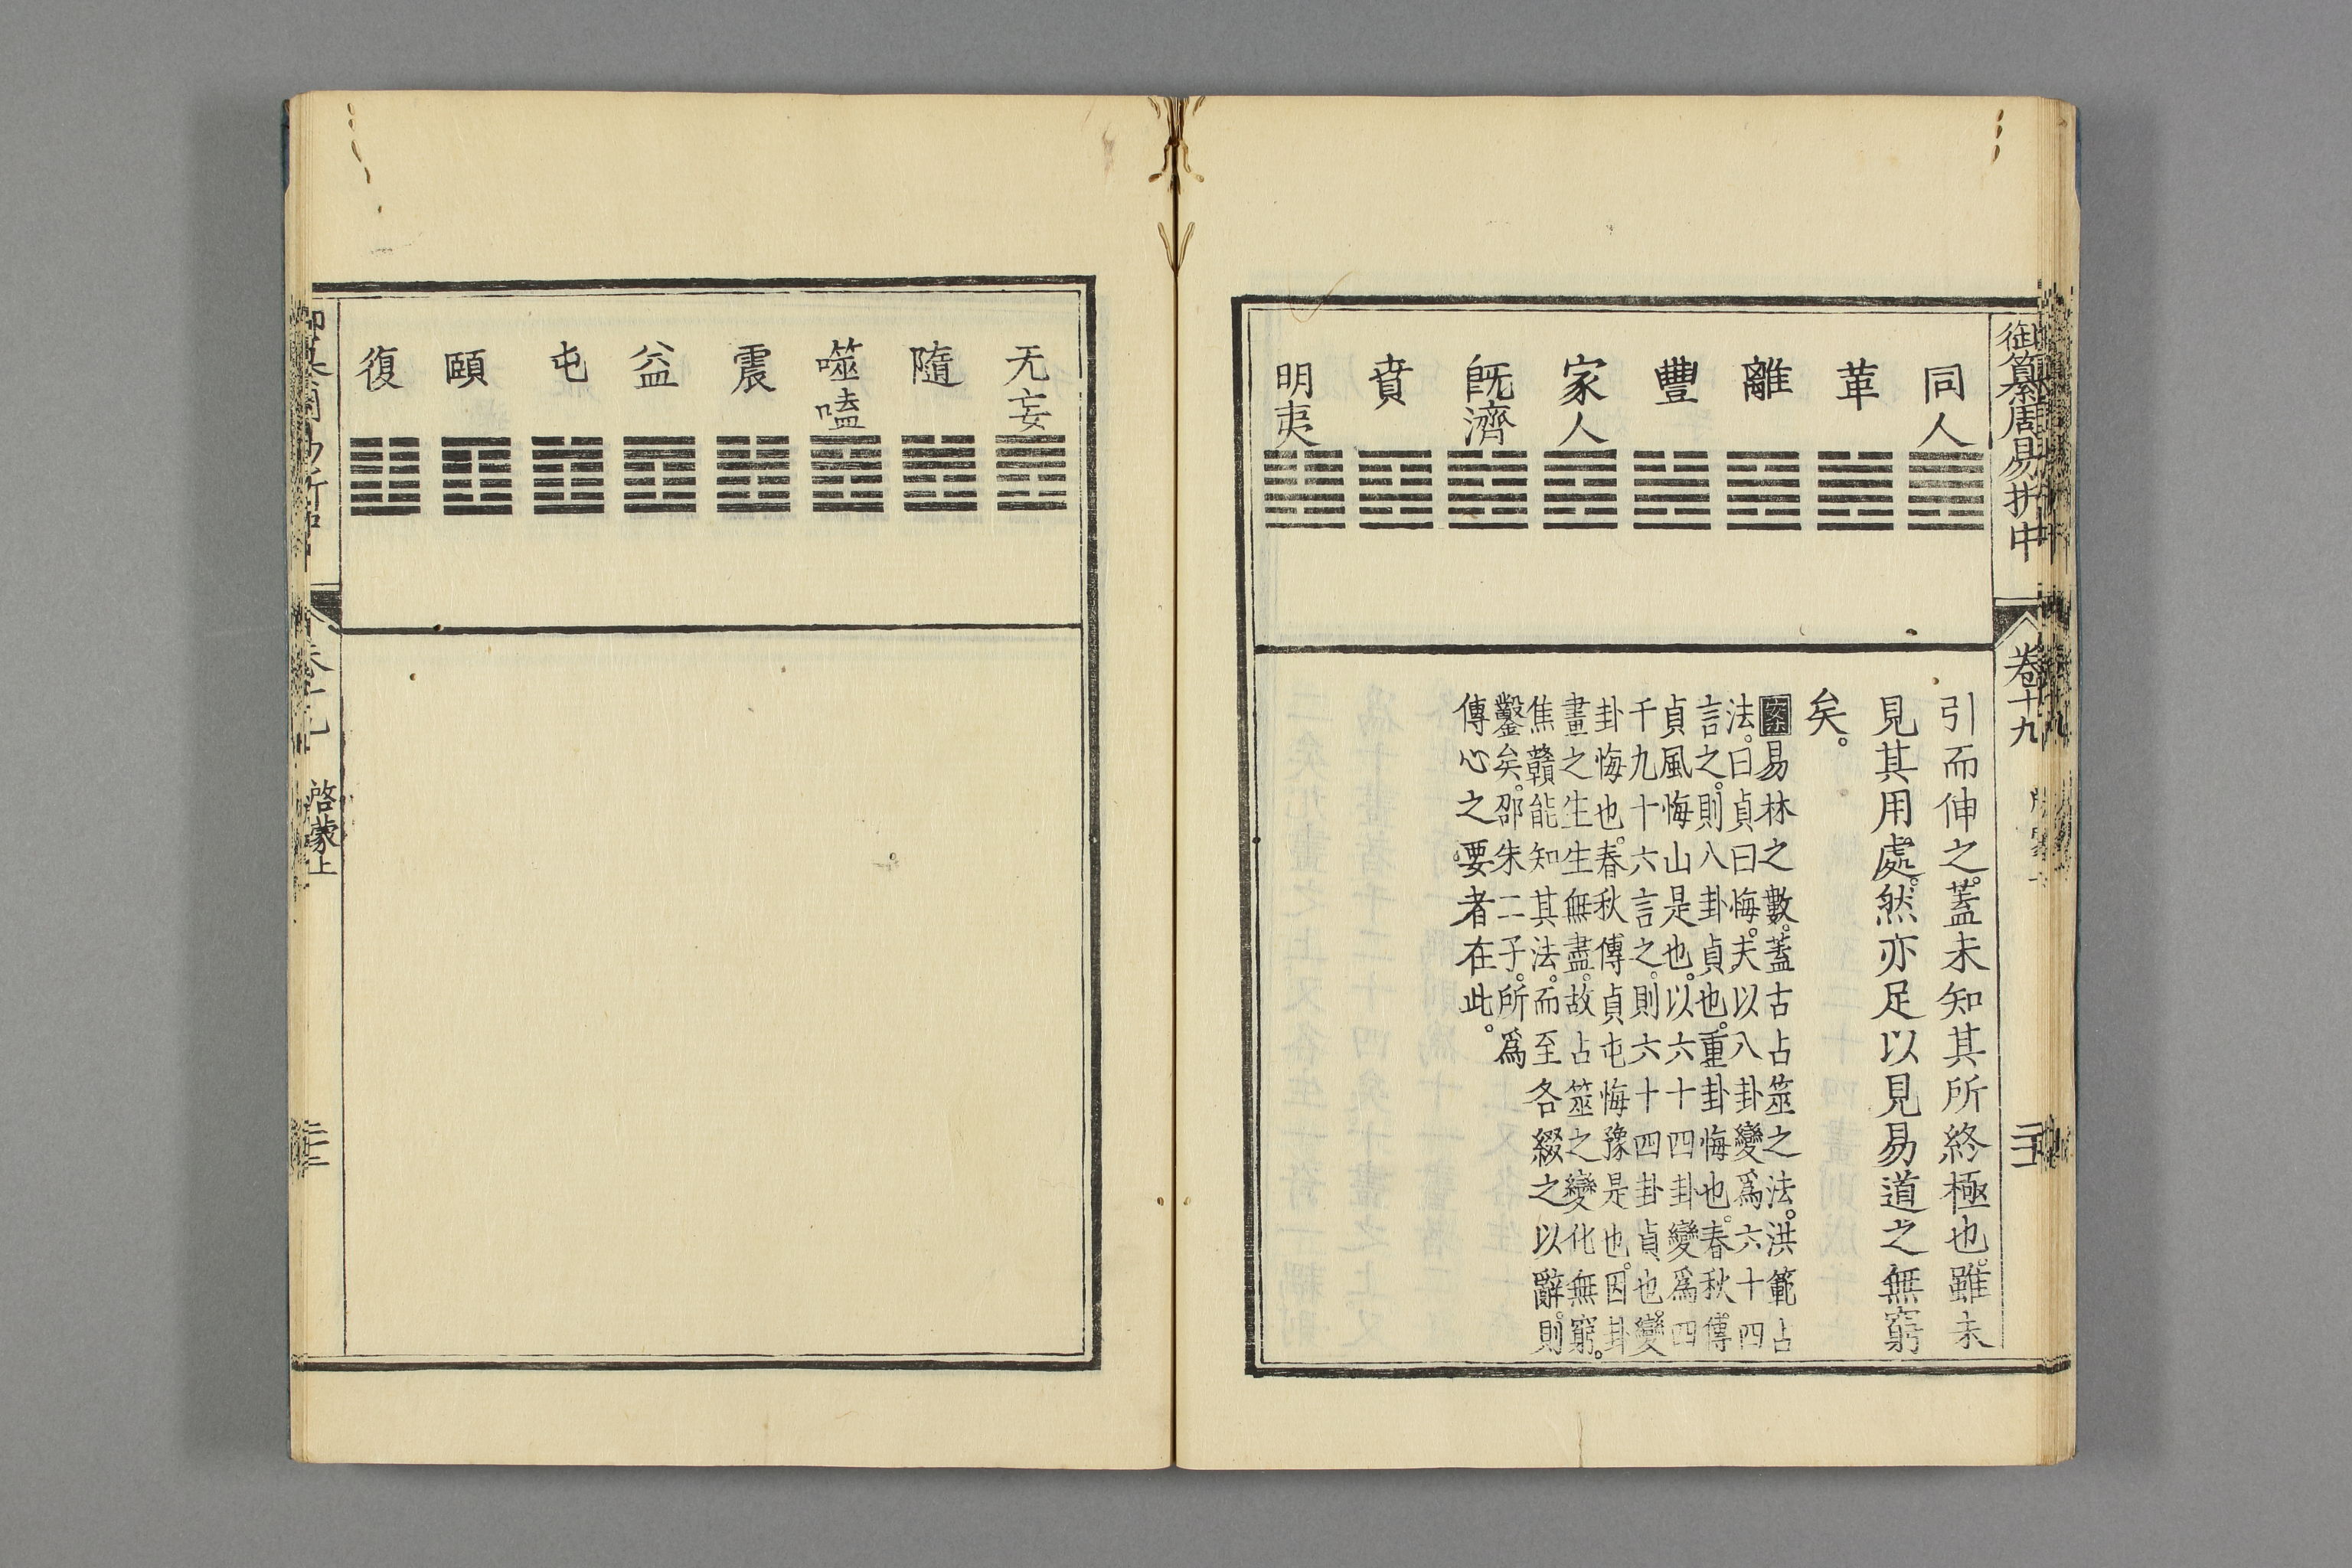 御纂周易折中
卷十九
同人
革
離
豐
家人
旣濟
賁
明夷
引而伸之。蓋未知其所終極也。雖未
見其用處。然亦足以見易道之無窮
矣。
案易林之數。蓋古占筮之法。洪範占
法。曰貞曰悔。夫以八卦變爲六十四
言之。則八卦貞也。重卦悔也。春秋傳
貞風悔山是也。以六十四卦變爲四
千九十六言之。則六十四卦貞也。變
卦悔也。春秋傳貞屯悔豫是也。因卦
畫之生生無盡。故占筮之變化無窮。
焦贛能知其法。而至各綴之以辭。則
鑿矣。邵朱二子。所爲
傳心之要者在此。
无妄
隨
噬嗑
震
益
屯
頤
復
啓蒙上